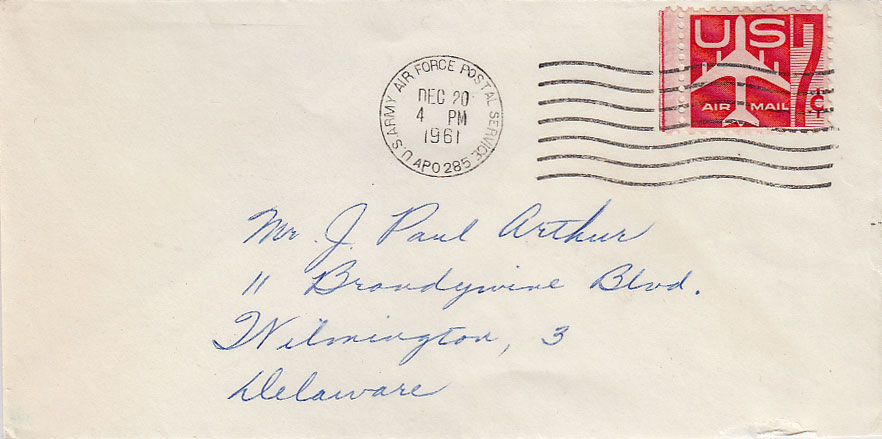 US
7¢
AIR MAIL
U.S. ARMY AIR FORCE POSTAL SERVICE
DEC 20
4 PM
1961
APO 285
Mr. J. Paul Arthur
11 Brandywine Blvd.
Wilmington, 3
Delaware